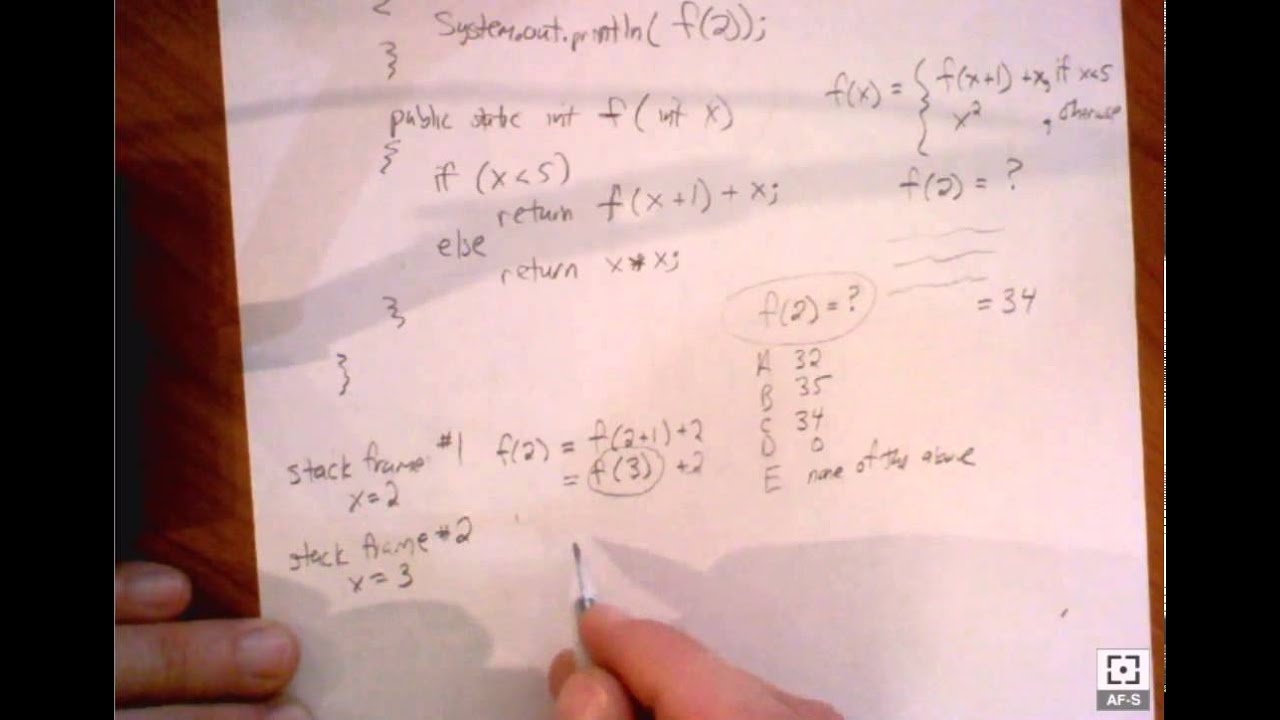 {
System.out.println( f(2));
}
public static int f( int x)
{
if (x<5)
return f(x+1) + x;
else
return x*x;
}
}
f(x) = { f(x+1) +x, if x<5
x² , otherwise
f(2) = ?
= 34
f(2) = ?
A 32
B 35
C 34
D 0
E none of the above
stack frame #1 f(2) = f(2+1)+2
x=2 = f(3) +2
stack frame #2
x=3
AF-S